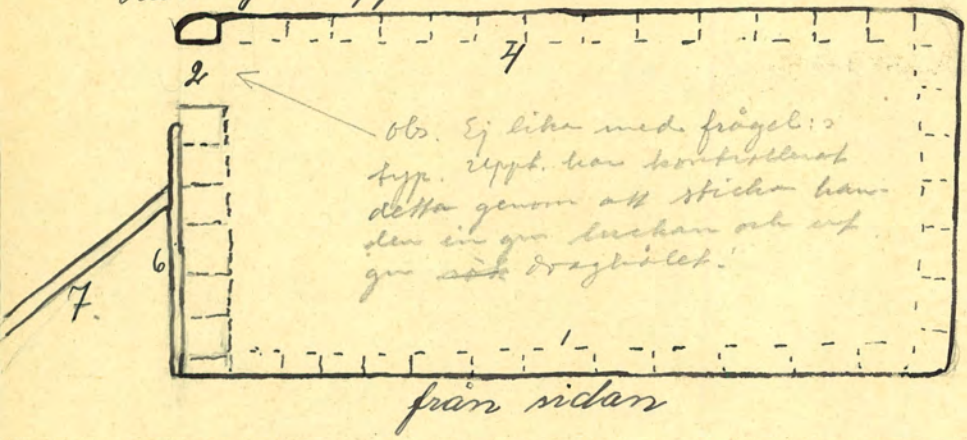 2
4
obs. Ej lika med frågel:s
typ. Uppt. har kontrollerat
detta genom att sticka han-
den in gm luckan och ut
gm draghålet!
6
7.
1
från sidan